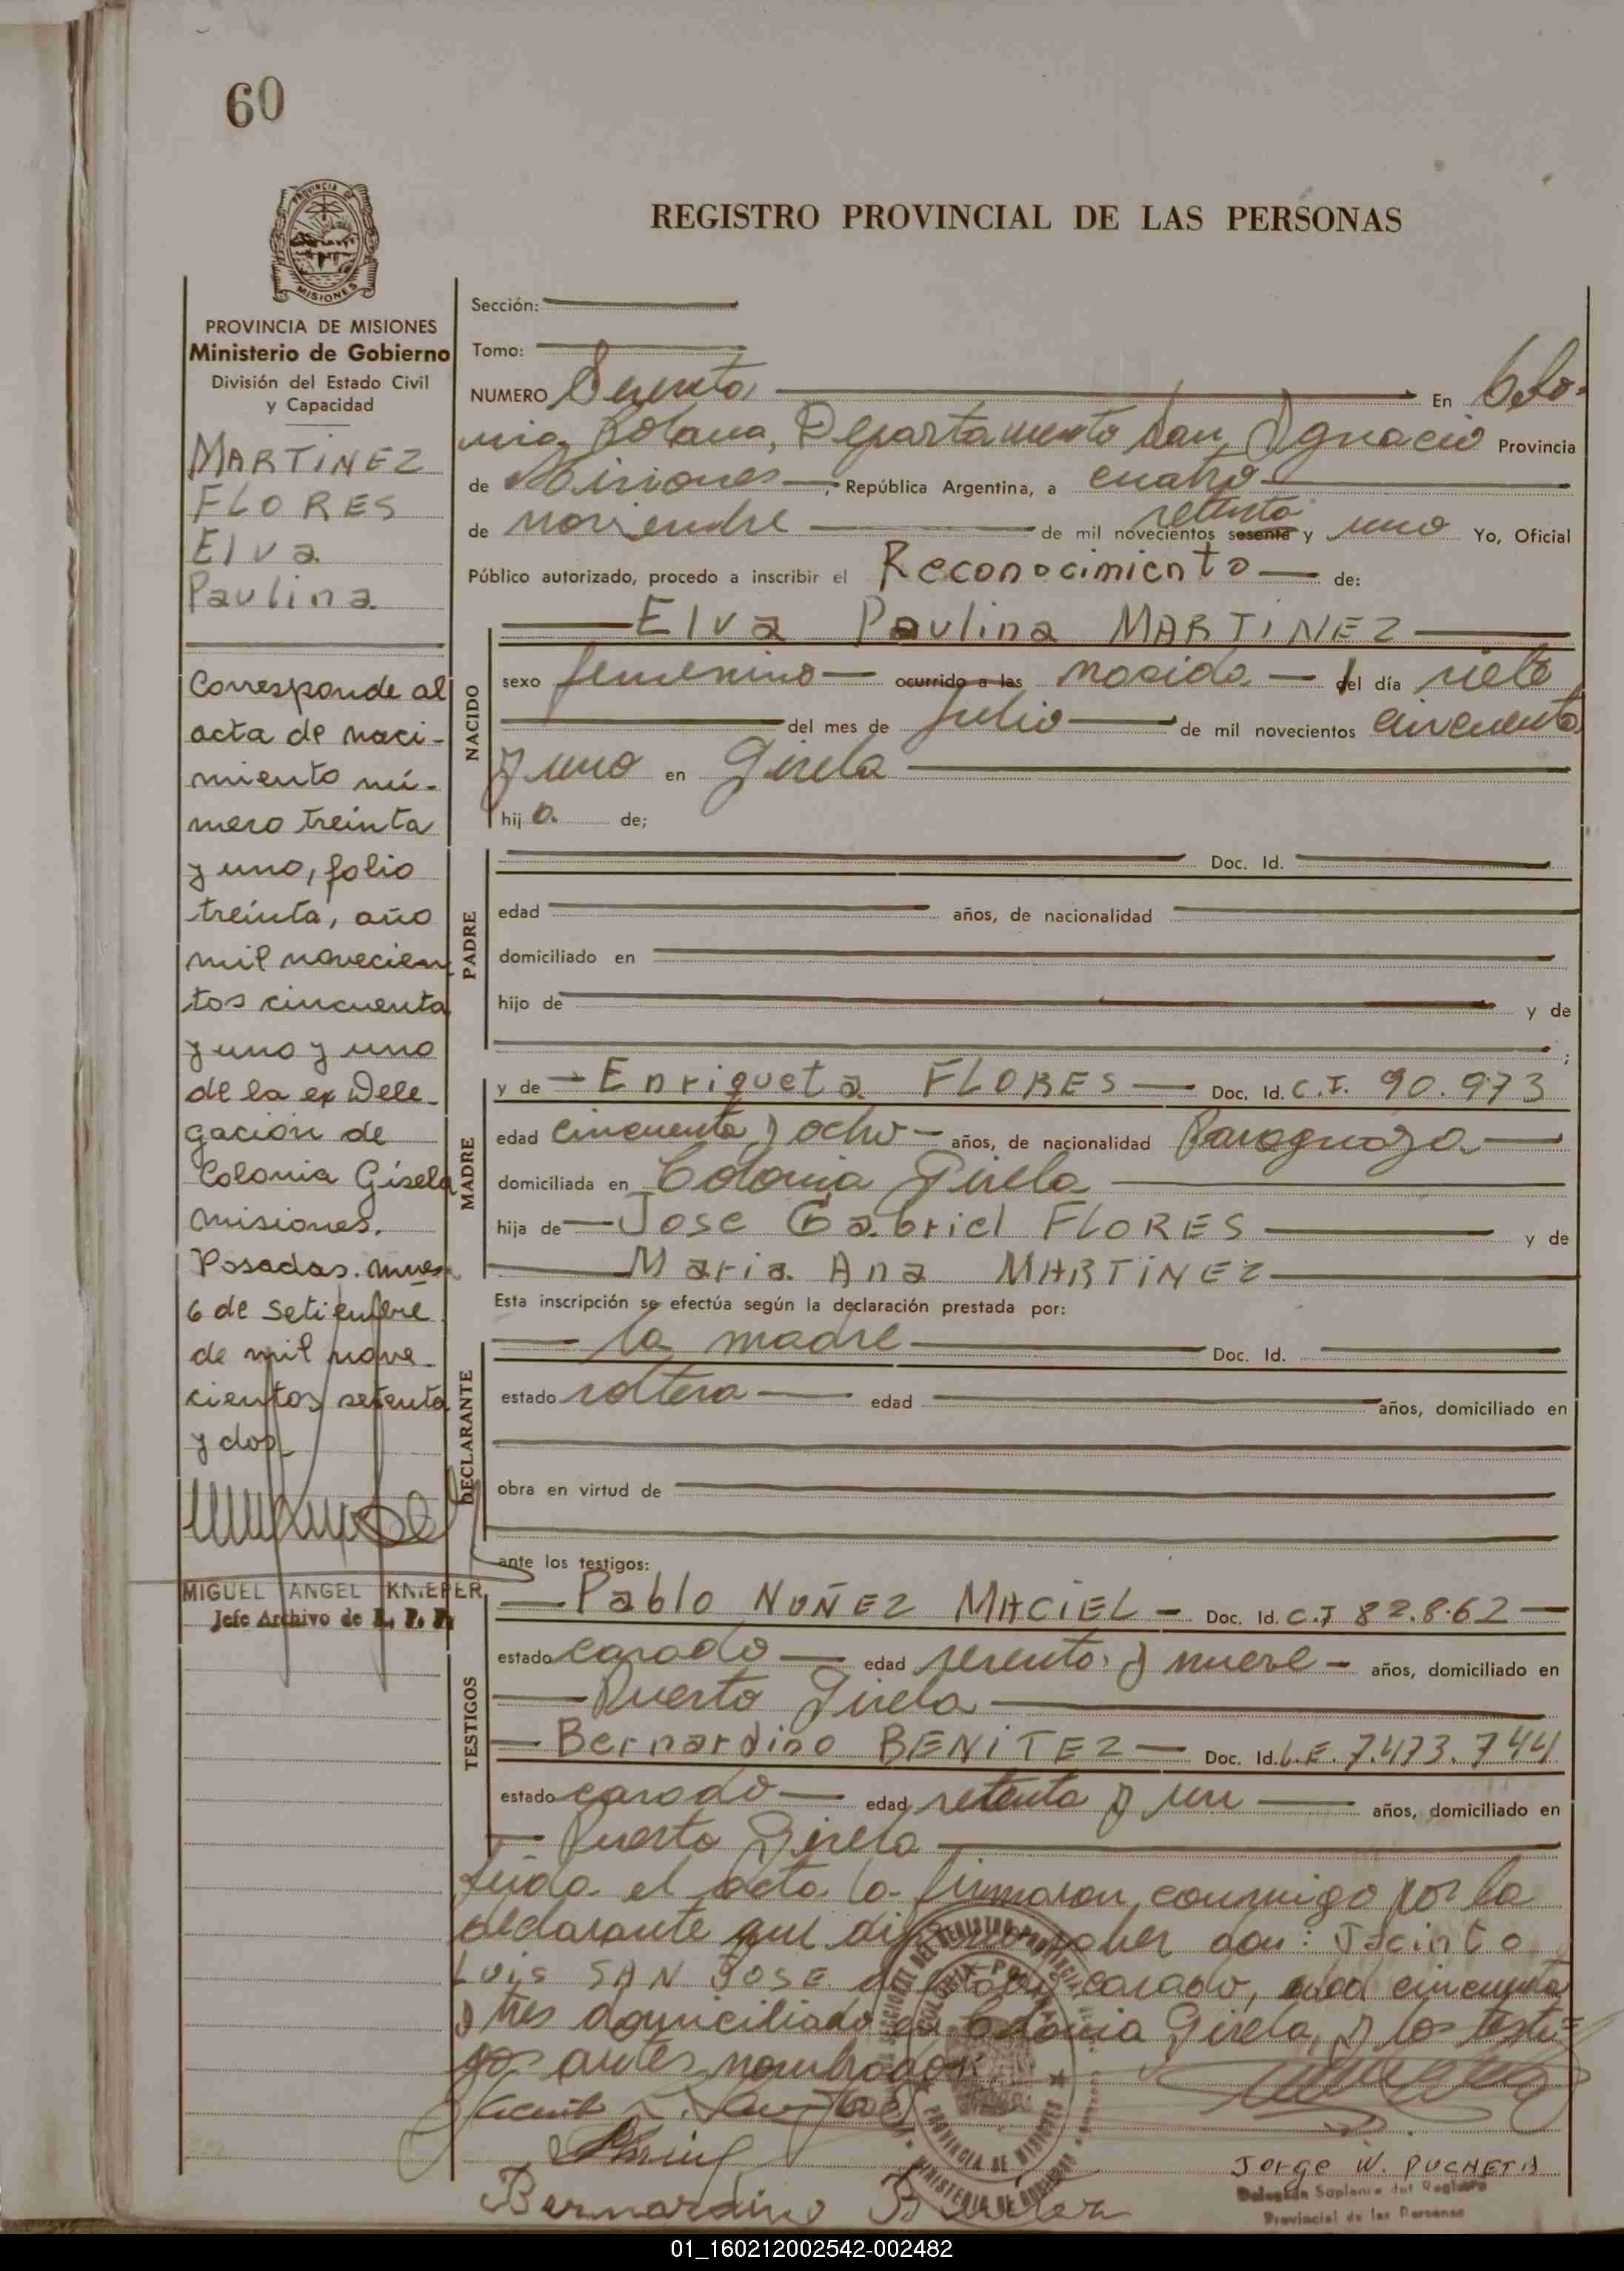 60
PROVINCIA DE
MISIONES
REGISTRO PROVINCIAL DE LAS PERSONAS
PROVINCIA DE MISIONES
Ministerio de Gobierno
División del Estado Civil
y Capacidad
MARTINEZ
FLORES
Elva
Paulina
Corresponde al
acta de naci-
miento nú-
mero treinta
y uno, folio
treinta, año
mil novecien
tos cincuenta
y uno y uno
de la ex Dele-
gación de
Colonia Gisela
misiones.
Posadas,
6 de Setiembre
de mil nove-
cientos setenta
y dos
MIGUEL ANGEL KNIEPER
Jefe Archivo de R. P. P.
Sección:
Tomo:
NUMERO Sesenta En Colo-
nia Polana, Departamento San Ignacio Provincia
de Misiones, República Argentina, a cuatro
setenta
de noviembre de mil novecientos sesenta y uno Yo, Oficial
Público autorizado, procedo a inscribir el Reconocimiento de:
NACIDO
Elva Paulina MARTINEZ
sexo femenino ocurrido a las nacida el día siete
del mes de Julio de mil novecientos cincuenta
y uno en Gisela
hij a de;
PADRE
Doc. Id.
edad años, de nacionalidad
domiciliado en
hijo de y de
;
MADRE
y de Enriqueta FLORES Doc. Id. C.I. 90.973
edad cincuenta y ocho años, de nacionalidad Paraguaya
domiciliada en Colonia Gisela
hija de Jose Gabriel FLORES y de
Maria Ana MARTINEZ
Esta inscripción se efectúa según la declaración prestada por:
DECLARANTE
la madre Doc. Id.
estado soltera edad años, domiciliado en
obra en virtud de
ante los testigos:
TESTIGOS
Pablo NUÑEZ MACIEL Doc. Id. C.I 82.862
estado casado edad sesenta y nueve años, domiciliado en
Puerto Gisela
Bernardino BENITEZ Doc. Id. L.E. 7.473.744
estado casado edad setenta y un años, domiciliado en
Puerto Gisela
Leida el acta la firmaron conmigo por la
declarante que dijo no saber don: Jacinto
Luis SAN JOSE de estado casado, edad cincuenta
y tres domiciliado en Colonia Gisela, y los testi=
gos antes nombrados.
PROVINCIA DE MISIONES
MINISTERIO DE GOBIERNO
Bernardino Benitez
Jorge W. PUCHETA
Delegado Suplente del Registro
Provincial de las Personas
01_160212002542-002482